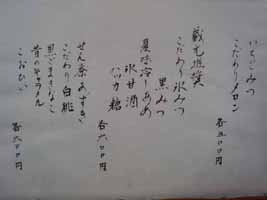 いちごみつ
こだわりメロン
各五〇〇円
蔵元推奨
こだわり氷みつ
黒みつ
夏味冷しあめ
氷甘酒
ハッカ糖
各六〇〇円
せん茶あずき
こだわり白桃
黒ごまきなこ
昔のキャラメル
こおひい
各六〇〇円